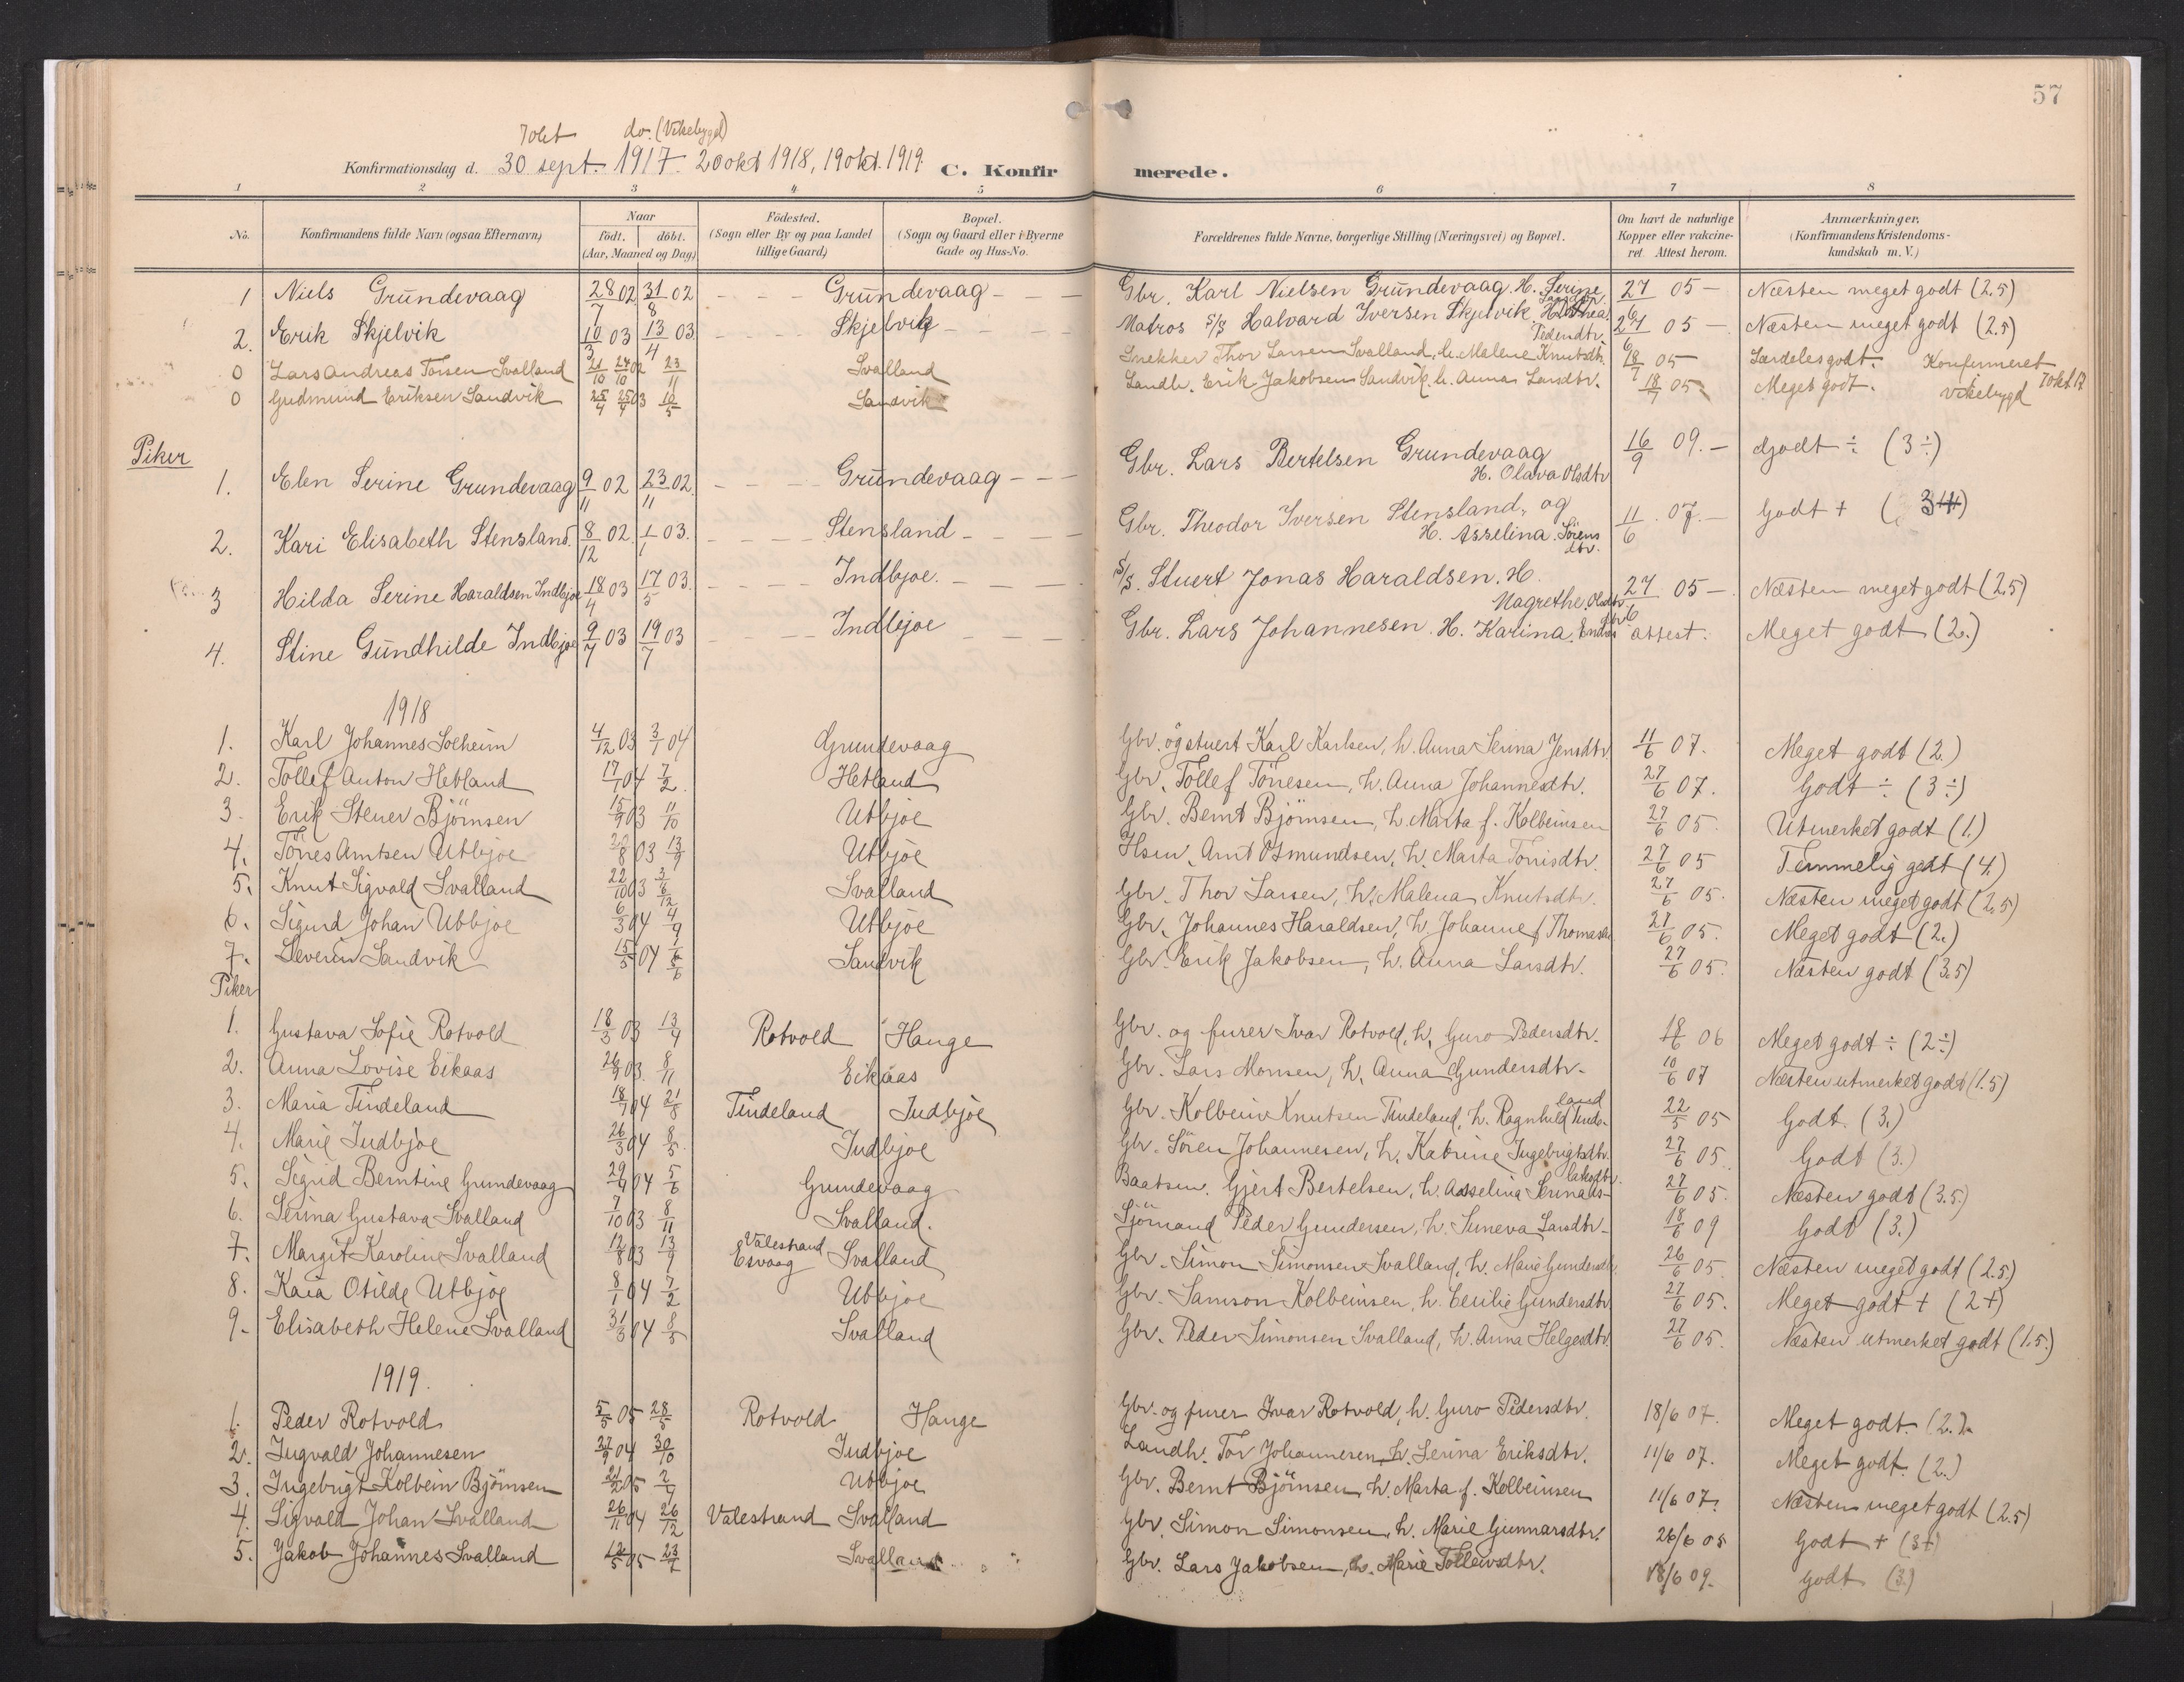 57
7 okt do. (Vikebygd)
Konfirmationsdag d. 30 sept. 1917. 20 okt 1918, 19 okt. 1919. C. Konfirmerede.
1 2 3 4 5 6 7 8
No. Konfirmandens fulde Navn (ogsaa Efternavn) Naar födt. döbt. (Aar, Maaned og Dag) Födested. (Sogn eller By og paa Landet tillige Gaard) Bopæl. (Sogn og Gaard eller i Byerne Gade og Hus-No. Forældrenes fulde Navne, borgerlige Stilling (Næringsvei) og Bopæl. Om havt de naturlige Kopper eller vakcineret Attest herom. Anmærkninger. (Konfirmandens Kristendomskundskab m. V.)
1 Niels Grundevaag 28/7 02 31/8 02 Grundevaag Gbr. Karl Nielsen Grundevaag. H. Serine 27/6 05 Næsten meget godt (2,5)
2. Erik Skjelvik 10/3 03 13/4 03. Skjelvik Matros S/S Halvard Iversen Skjelvik Pedersdtr. 27/6 05 Næsten meget godt (2.5)
0 Lars Andreas Torsen Svalland 21/10 24/10 02 23/11 Svalland Snekker Thor Larsen Svalland, h. Malene Knutsdtr. 18/7 05 Særdeles godt. Konfirmeret
0 Gudmund Eriksen Sandvik 25/4 25/4 03 10/5 Sandvik Landb. Erik Jakobsen Sandvik, h. Anna Larsdtr. 18/7 05 Meget godt. Vikebygd 7 okt 17
Piker
1. Elen Serine Grundevaag 9/11 02 23/11 02. Grundevaag Gbr. Lars Bertelsen Grundevaag H. Olava Olsdtr 16/9 09. Godt ÷ (3 ÷)
2. Kari Elisabeth Stensland. 8/12 02. 1/1 03. Stensland Gbr. Theodor Iversen Stensland, og H. Asselina Sörensdtr. 11/6 07. Godt + (3+)
3 Hilda Serine Haraldsen Indbjoe 18/4 03 17/5 03. Indbjoe. S/S. Stuert Jonas Haraldsen. H. Magrethe Olsdtr 27/6 05 Næsten meget godt (2,5)
4. Stine Gundhilde Indbjoe 9/7 03 19/7 03 Indbjoe Gbr. Lars Johannesen. H. Karina attest. Meget godt (2.)
1918
1. Karl Johannes Solheim 4/12 03 3/1 04 Grundevaag Gbr. og stuert Karl Karlsen, h. Anna Serina Jensdtr 11/6 07. Meget godt (2.)
2. Tollef Anton Hetland 17/1 04 7/2. Hetland Gbr. Tollef Törresen, h. Anna Johannesdtr. 27/6 07. Godt ÷ (3 ÷)
3. Erik Stener Björnsen 15/9 03 11/10 Utbjoe Gbr. Bernt Björnsen, h. Marta f. Kolbeinsen 27/6 05. Utmerket godt (1.)
4. Törres Arntsen Utbjoe 20/8 03 13/9 Utbjoe Hsm. Arnt Osmundsen, h. Marta Torrisdtr. 27/6 05 Temmelig godt (4.)
5. Knut Sigvald Svalland 22/10 03 Svalland Gbr. Thor Larsen, h. Malena Knutsdtr. 27/6 05. Næsten meget godt (2,5)
6. Sigurd Johan Utbjoe 6/3 04 4/9 Utbjoe Gbr. Johannes Haraldsen, h. Johanne f. Thomasen 27/6 05. Meget godt (2.)
7. Severin Sandvik 15/5 04 Sandvik Gbr. Erik Jakobsen, h. Anna Larsdtr. 27/6 05. Næsten godt (3.5)
Piker
1. Gustava Sofie Rotvold 18/3 03 13/4 Rotvold Hauge Gbr. og furer Ivar Rotvold, h. Guro Pedersdtr. 18/6 06 Meget godt ÷ (2 ÷)
2. Anna Lovise Eikaas 26/9 03. 8/11 Eikaas Gbr. Lars Monsen, h. Anna Gundersdtr. 10/6 07 Næsten utmerket godt (1.5)
3. Maria Tindeland 18/7 04 21/8 Tindeland Indbjoe Gbr. Kolbein Knutsen Tindeland, h. Ragnhild Tindeland 22/5 05 Godt. (3.)
4. Marie Indbjoe 26/3 04 8/5 Indbjoe Gbr. Sören Johannesen, h. Katrine Ingebrigtsdtr. 27/6 05. Godt (3.)
5. Sigrid Berntine Grundevaag 29/4 04 5/6 Grundevaag Baatsm. Gjert Bertelsen, h. Asselina Serina 27/6 05. Næsten godt (3.5.)
6. Serina Gustava Svalland 7/10 03 8/11 Svalland. Sjömand Peder Gundersen, h. Suneva Larsdtr. 18/6 09 Godt (3.)
7. Margit Karoline Svalland 12/8 03 13/9 Valestrand Esvaag Svalland Gbr. Simon Simonsen Svalland, h. Marie Gundersdtr. 26/6 05. Næsten meget godt (2.5.)
8. Kaia Otilde Utbjoe 8/1 04 7/2 Utbjoe Gbr. Samson Kolbeinsen, h. Cecilie Gundersdtr 27/6 05. Meget godt + (2 +)
9. Elisabeth Helene Svalland 31/3 04 8/5 Svalland Gbr. Peder Simonsen Svalland, h. Anna Helgesdtr. 27/6 05. Næsten utmerket godt (1.5.)
1919.
1. Peder Rotvold 5/5 05 28/5 Rotvold Hauge Gbr. og furer Ivar Rotvold, h. Guro Pedersdtr. 18/6 07. Meget godt. (2.)
2. Ingvald Johannesen 27/9 04 30/10 Indbjoe Landh. Tor Johannesen, h. Serina Eriksdtr. 11/6 07. Meget godt. (2.)
3. Ingebrigt Kolbein Björnsen 21/2 05 2/4 Utbjoe Gbr. Bernt Björnsen, h. Marta f. Kolbeinsen 11/6 07. Næsten meget godt (2.5)
4. Sigvald Johan Svalland 26/11 04 26/12 Valestrand Svalland Gbr. Simon Simonsen, h. Marie Gunnarsdtr. 26/6 05 Godt + (3+)
5. Jakob Johannes Svalland 05 Svalland Gbr. Lars Jakobsen, h. Marie Tollevsdtr. 18/6 09. Godt (3.)